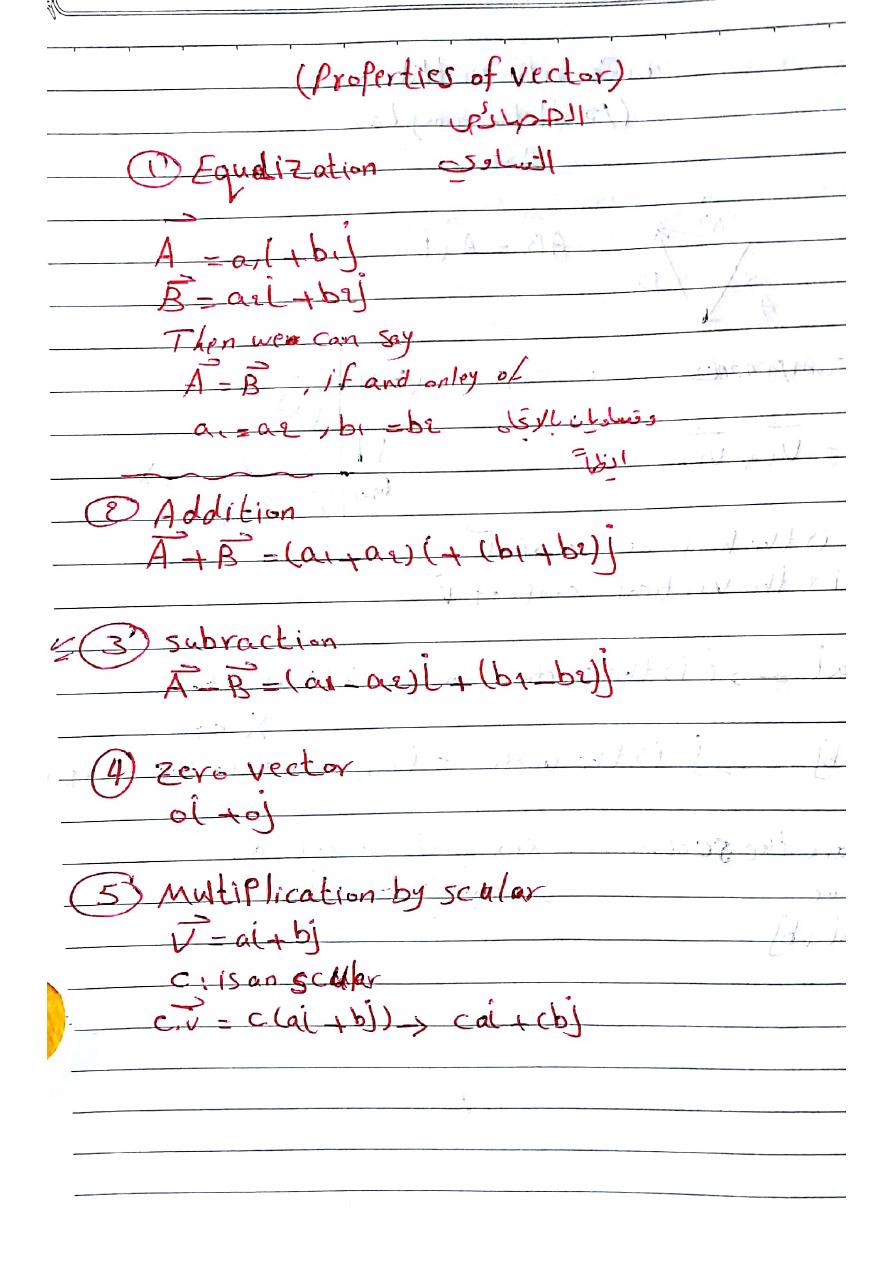 (Properties of vector)
الخصائص
① Equalization التساوي
A⃗ = a₁i + b₁j
B⃗ = a₂i + b₂j
Then we can say
A⃗ = B⃗ , if and onley of
a₁ = a₂ , b₁ = b₂ وتساويان بالاتجاه
ايظاً
② Addition
A⃗ + B⃗ = (a₁ + a₂)i + (b₁ + b₂)j
③ subraction
A⃗ - B⃗ = (a₁ - a₂)i + (b₁ - b₂)j
④ zero vector
oi + oj
⑤ Multiplication by scular
V⃗ = ai + bj
c : is an scular
c.v⃗ = c(ai + bj) → cai + cbj